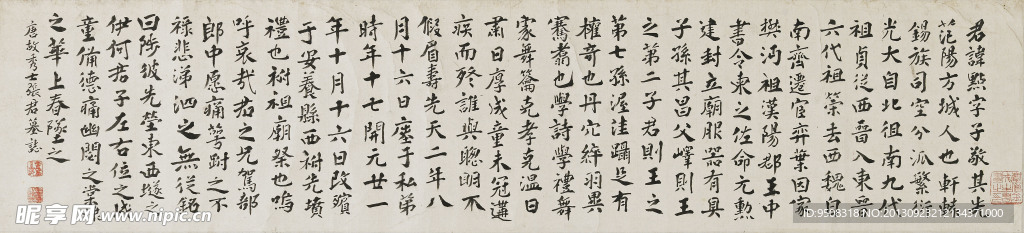 君諱點字子敬其先
范陽方城人也軒轅
錫族司空分派繁衍
光大自北徂南九代
祖貞從西晉入東晉
六代祖策去西魏自
南齊遷宦弈葉因家
樊沔祖漢陽郡王中
書令柬之佐命元勲
建封立廟服器有典
子孫其昌父嶧則王
之第二子君則王之
第七孫渥洼躡足有
權奇也丹穴綷羽與
騫翥也學詩學禮舞
象舞籥克孝克溫日
肅日厚成童未冠遘
疾而殀誰與聰明不
假眉壽先天二年八
月十六日座于私第
時年十七開元廿一
年十月十六日改殯
于安養縣西祔先墳
禮也祔祖廟祭也嗚
呼哀哉君之兄駕部
郎中愿痛蕚跗之不
祿悲涕泗之無從銘
曰陟彼先塋東西隧之
伊何君子左右位之成
童備德痛幽閟之棠棣
之華上春墜之
唐故秀士張君墓誌
昵享网 www.nipic.cn
昵图网 nipic.com
ID:9508318 NO:20130923212134371000